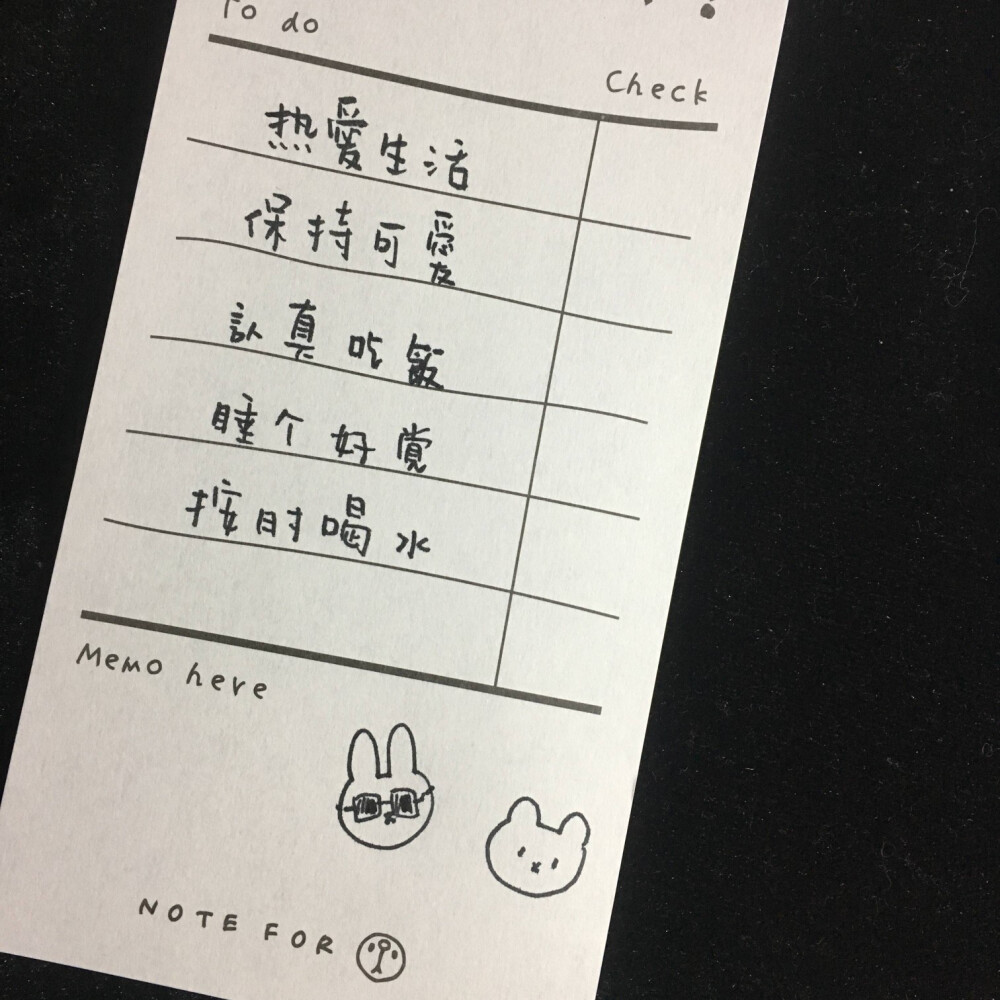 To do
Check
热愛生活
保持可愛
認真吃飯
睡个好覺
按时喝水
Memo here
NOTE FOR